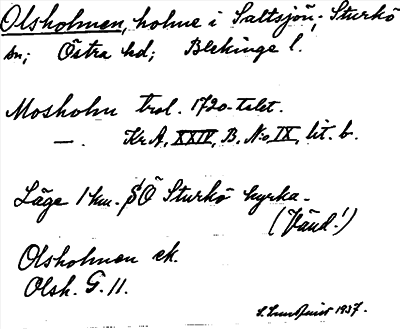 Olsholmen, holme i Saltsjön; Sturkö
sn; Östra hd; Blekinge l.
Mosholm trol. 1720-talet.
— . Kr.A, XXIV, B. No IX, lit. b.
Läge 1 km. SÖ Sturkö kyrka.
(Vänd!)
Olsholmen ek.
Olsh. G. 11.
S. Lundquist 1937.